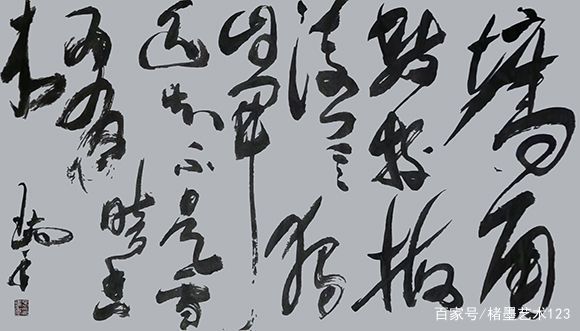 墙角
数枝梅
凌寒独
自开
遥知不是雪
为有暗香
来
百家号/楮墨艺术123